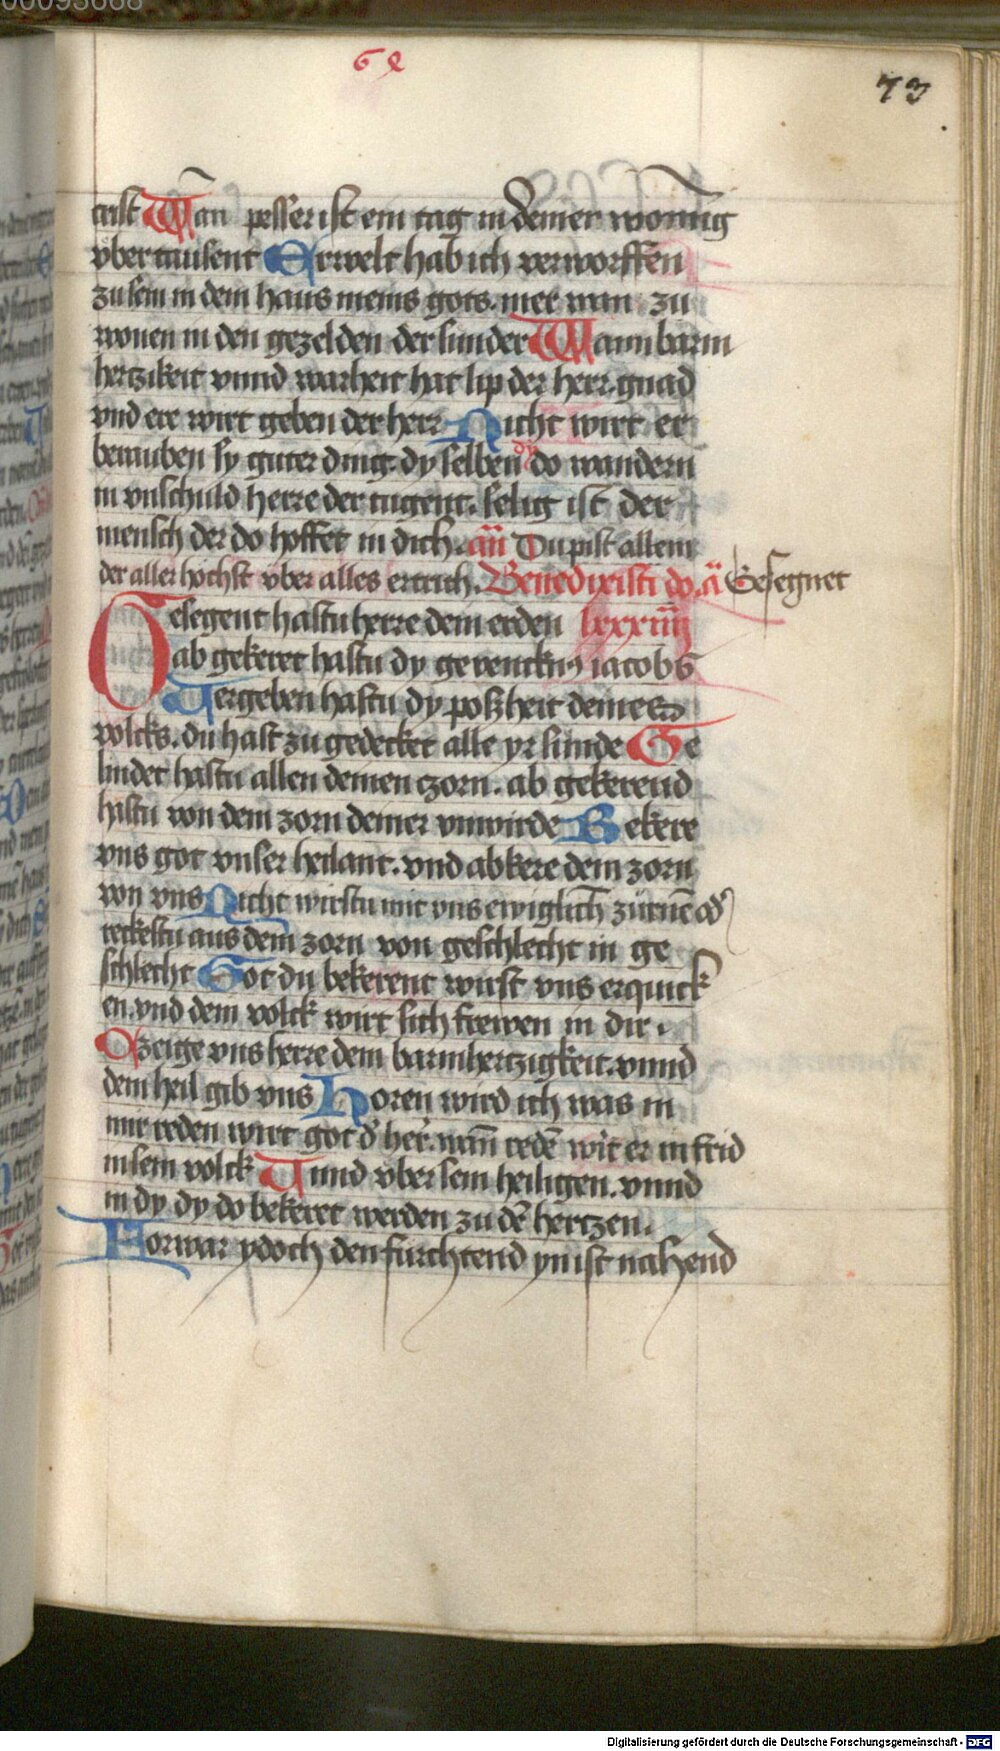 00093668
6 2
73
crist Wan pesser ist ein tag in deiner wonung
vber tausent Erwelt hab ich verworffen
zu sein in dem haus meins gots. mer wan zu
wonen in den gezelden der sunder Wann barm
hertzikeit vnnd warheit hat lip der herr. gnad
vnd ere wirt geben der herr Nicht wirt er
berauben sy guter ding. dy selben dy do wandern
in vnschuld Herre der tugent. selig ist der
mensch der do hoffet in dich. an̄ Du pist allein
der aller hochst vber alles ertrich. Benedixisti do. ā Gesegnet
Gesegent hastu herre dein erden lxxxiiij
ab gekeret hastu dy gevencknus iacobs
Vergeben hastu dy poszheit deines
volcks. du hast zu gedecket alle yr sunde Ge
lindet hastu allen deinen czorn. ab gekerend
hastu von dem zorn deiner vnwirde Bekere
vns got vnser heilant. vnd abkere dein zorn
von vns Nicht wirstu mit vns ewiglich zürnē od̕
reckestu aus dein zorn von geschlecht in ge
schlecht Got du bekerent wirst vns erquick
en. vnd dein volck wirt sich frewen in dir.
Ozeige vns herre dein barmhertzigkeit. vnnd
dein heil gib vns Horen wird ich was in
mir reden wirt got d̕ her̕. wan̄ redē wirt er in frid
in sein volck Vnnd vber sein heiligen. vnnd
in dy dy do bekeret werden zu dē hertzen.
Forwar ydoch den furchtend yn ist nahend
Digitalisierung gefördert durch die Deutsche Forschungsgemeinschaft - DFG